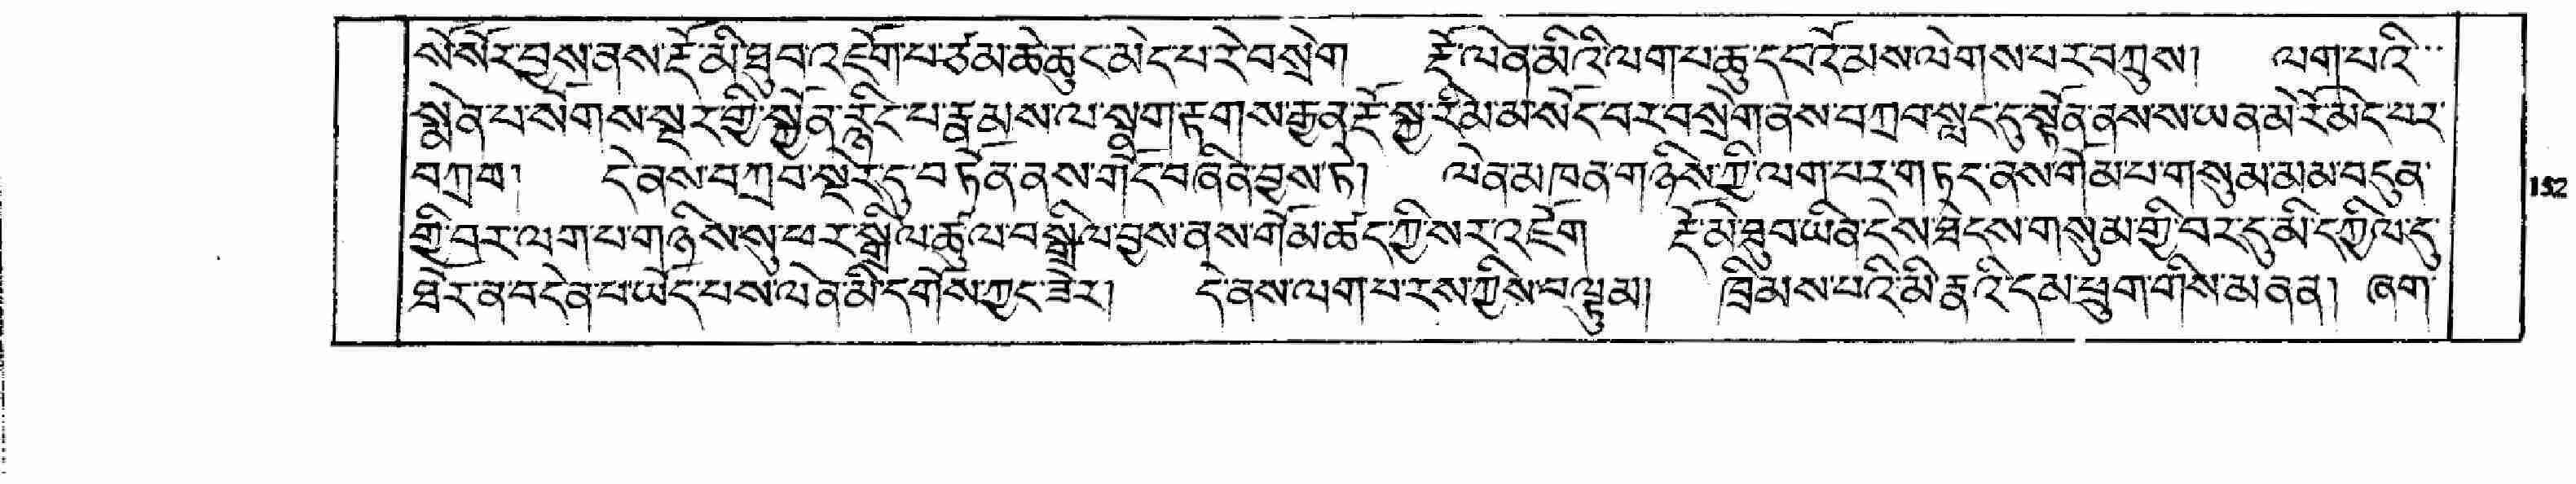 སེ་སོར་བྱས་ནས་རྡོ་མི་ཐུབ་འཇོག་པ་ཙམ་ཆེ་ཆུང་མེད་པ་རེ་བསྲེག རྡོ་ལེན་མིའི་ལག་པ་ཆུ་དང་འོམས་ལེགས་པར་བཀྲུས། ལག་པའི་
སྨེན་པ་སོགས་སྔར་གྱི་སྐྱོན་རྙིང་པ་རྣམས་ལ་སྣག་རྟགས་རྒྱན་རྡོ་སྐྱ་རིམེ་མ་སོང་བར་བསྲེག་ནས་བཀྲབ་སླང་དུ་སྟོན་ནས་ས་ཡན་མེ་རོ་མེད་པར་
བཀྲབ། དེ་ནས་བཀྲབ་སྡེར་དུ་བཏོན་ནས་གོང་བཞིན་བྱས་ཏེ། ལེན་མཁན་གཉིས་ཀྱི་ལག་པར་གཏད་ནས་གོམ་པ་གསུམ་མམ་བདུན་
གྱི་བར་ལག་པ་གཉིས་སུ་ཕར་སྒྲིལ་ཚུལ་བསྒྲིལ་བྱས་ནས་གོམ་ཚད་ཀྱི་སར་འཇོག རྡོ་མེ་ཐུབ་ཡིན་ངེས་ཐེངས་གསུམ་གྱི་བར་དུ་མི་དཀྱིལ་དུ་
ཐེར་ན་བདེན་པ་ཡོད་པས་ལེན་མི་དགོས་ཀྱང་ཟེར། དེ་ནས་ལག་པ་རས་ཀྱིས་བལྟུམ། ཁྲིམས་པའི་མི་རྣའི་དམ་ཕྲུག་གིས་མནན། ཞག་
152